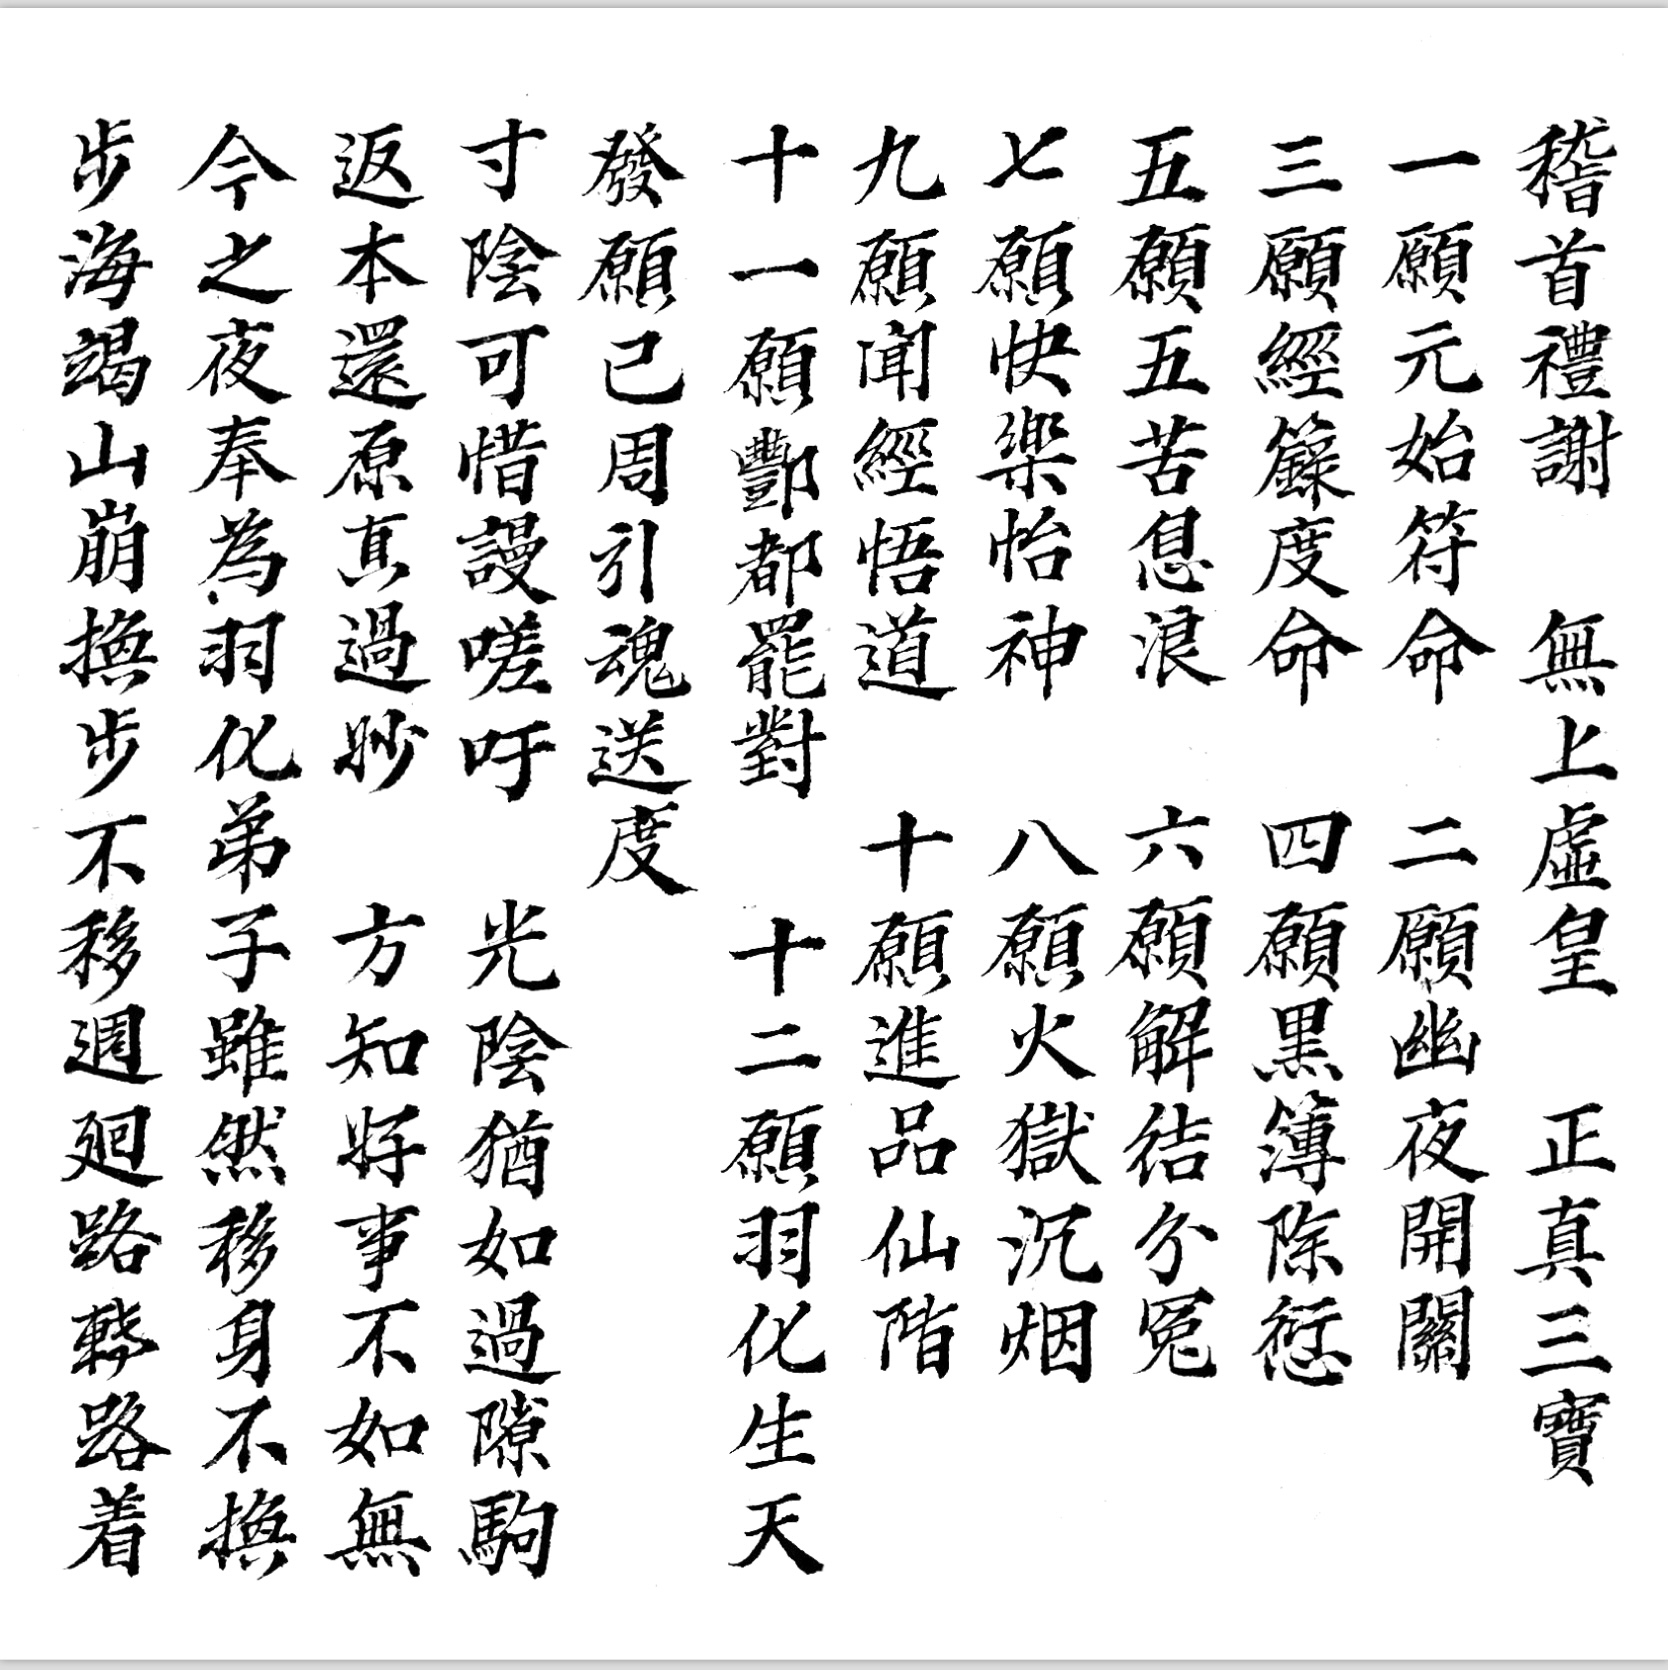 稽首禮謝　無上虛皇　正真三寶
一願元始符命　二願幽夜開關
三願經籙度命　四願黑簿除愆
五願五苦息浪　六願解結分冤
七願快樂怡神　八願火獄沉烟
九願聞經悟道　十願進品仙階
十一願酆都罷對　十二願羽化生天
發願已周引魂送度
寸陰可惜謾嗟吁　光陰猶如過隙駒
返本還原真過妙　方知好事不如無
今之夜奉為羽化弟子雖然移身不換
步海竭山崩換步不移週廻路轉路着